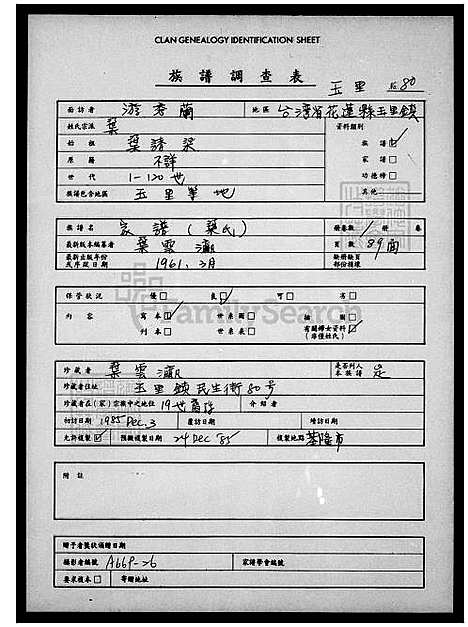 CLAN GENEALOGY IDENTIFICATION SHEET
族譜調查表
玉里 80
面訪者 游秀蘭 地區 台灣省花蓮縣玉里鎮
姓氏宗派 葉 資料類別
始祖 葉 族譜
原籍 不詳 家譜
世代 1-120世 功德榜
族譜包含地區 玉里 地 其他
族譜名 家譜(葉氏) 冊卷數 1 冊 卷
最新版本編纂者 葉雲 頁數 89面
最新出版年份或序跋日期 1961, 3月 缺冊缺頁部份損壞
保管狀況 優□ 良 可□ 劣□
FamilySearch
內容 寫本 世系圖□ 插圖□
刊本□ 世系表□ 有關婦女資料(非僅姓氏)
珍藏者 葉雲 是否列入本族譜 是
珍藏者住址 玉里鎮民生街80号
珍藏者在(家)宗族中之地位 19世 介紹者
初訪日期 1985 Dec. 3 覆訪日期 續訪日期
允許複製 預擬複製日期 24 Dec '85 複製地點 基隆市
附註
贈予者獎狀頒贈日期
攝影者編號 A669-26 家譜學會編號
要求複本□ 寄贈地址